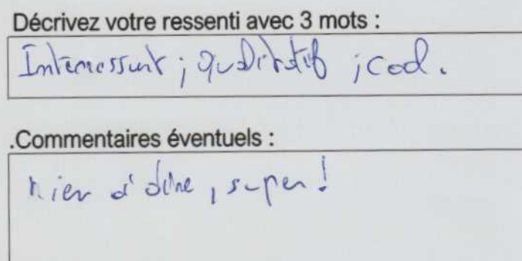 Décrivez votre ressenti avec 3 mots :
Interressant ; qualitatif ; cool.
.Commentaires éventuels :
rien à dire, super !